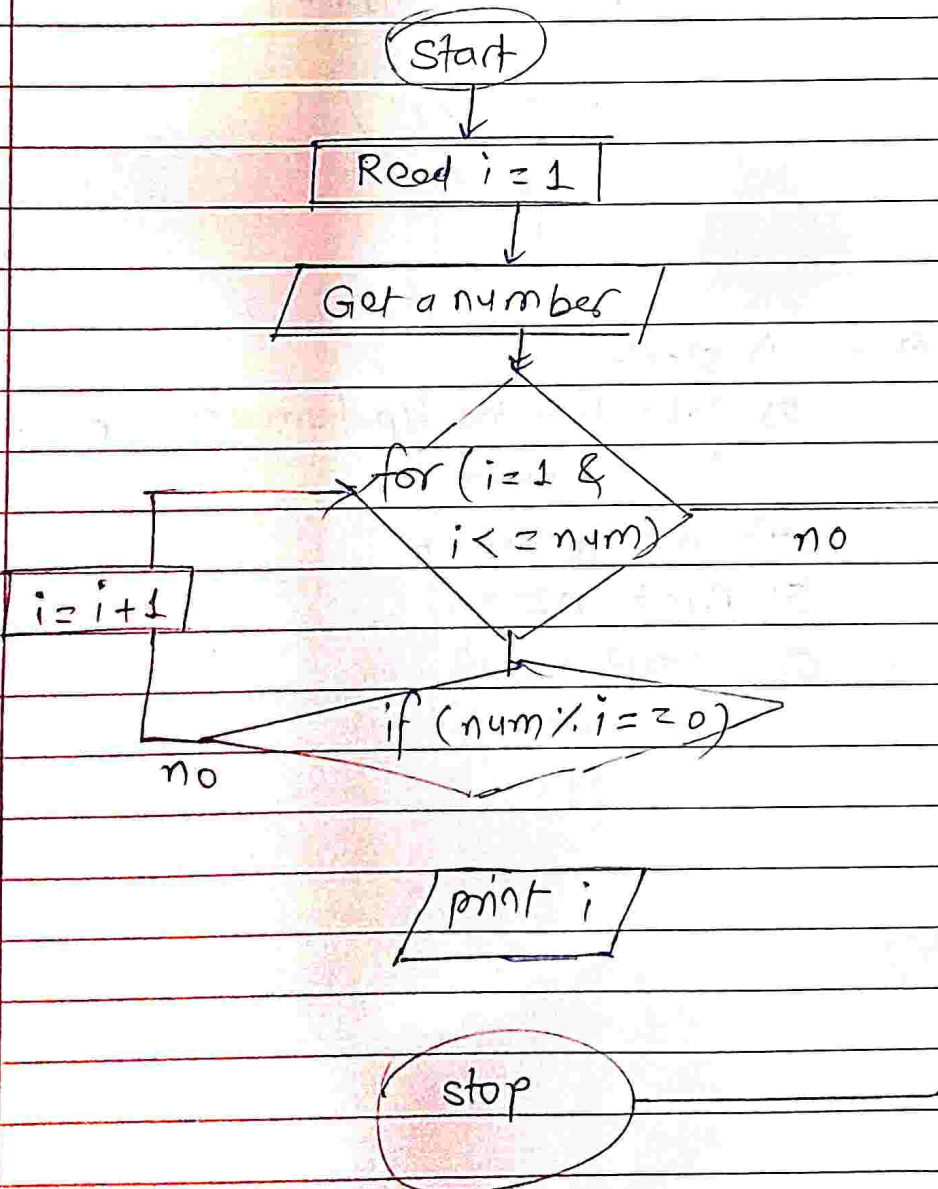 Start
Read i = 1
Get a number
for (i=1 &
i <= num)
no
i = i+1
if (num % i == 0)
no
print i
stop